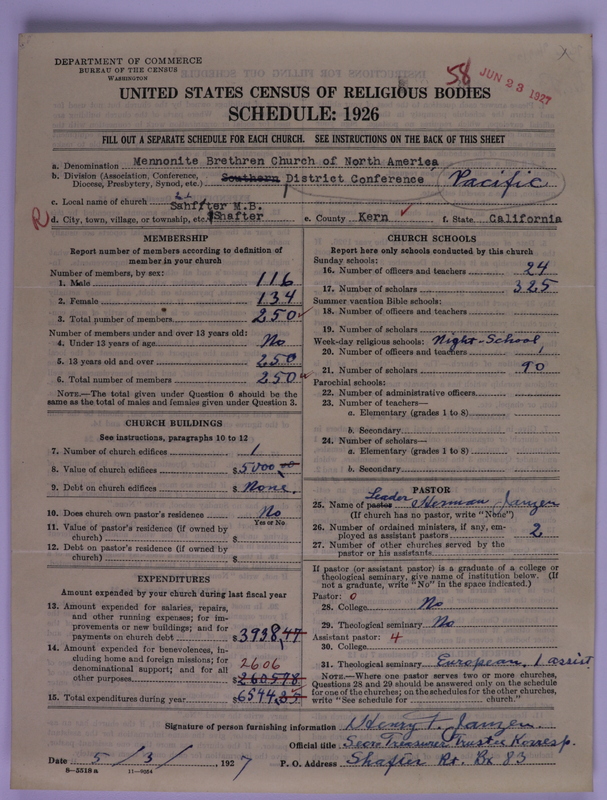 DEPARTMENT OF COMMERCE
BUREAU OF THE CENSUS
WASHINGTON
58 JUN 23 1927
UNITED STATES CENSUS OF RELIGIOUS BODIES
SCHEDULE: 1926
FILL OUT A SEPARATE SCHEDULE FOR EACH CHURCH. SEE INSTRUCTIONS ON THE BACK OF THIS SHEET
a. Denomination Mennonite Brethren Church of North America,
b. Division (Association, Conference, Diocese, Presbytery, Synod, etc.) Southern District Conference Pacific
c. Local name of church M.B.
R d. City, town, village, or township, etc. Shafter e. County Kern f. State California
MEMBERSHIP
Report number of members according to definition of member in your church
Number of members, by sex:
1. Male 116
2. Female 134
3. Total number of members 250
Number of members under and over 13 years old:
4. Under 13 years of age No
5. 13 years old and over 250
6. Total number of members 250
NOTE.—The total given under Question 6 should be the same as the total of males and females given under Question 3.
CHURCH BUILDINGS
See instructions, paragraphs 10 to 12
7. Number of church edifices 1
8. Value of church edifices $5000
9. Debt on church edifices $ None.
10. Does church own pastor's residence? No
Yes or No
11. Value of pastor's residence (if owned by church) $
12. Debt on pastor's residence (if owned by church) $
EXPENDITURES
Amount expended by your church during last fiscal year
13. Amount expended for salaries, repairs, and other running expenses; for improvements or new buildings; and for payments on church debt $3938,47
14. Amount expended for benevolences, including home and foreign missions; for denominational support; and for all other purposes 2606 $260578
15. Total expenditures during year $6544,25
CHURCH SCHOOLS
Report here only schools conducted by this church
Sunday schools:
16. Number of officers and teachers 24
17. Number of scholars 325
Summer vacation Bible schools:
18. Number of officers and teachers
19. Number of scholars
Week-day religious schools: Night-School,
20. Number of officers and teachers
21. Number of scholars 90
Parochial schools:
22. Number of administrative officers
23. Number of teachers—
a. Elementary (grades 1 to 8)
b. Secondary
24. Number of scholars—
a. Elementary (grades 1 to 8)
b. Secondary
PASTOR
Leader
25. Name of pastor Herman Janzen
(If church has no pastor, write "None")
26. Number of ordained ministers, if any, employed as assistant pastors 2
27. Number of other churches served by the pastor or his assistants
If pastor (or assistant pastor) is a graduate of a college or theological seminary, give name of institution below. (If not a graduate, write "No" in the space indicated.)
Pastor: 0
28. College No
29. Theological seminary No
Assistant pastor: 4
30. College
31. Theological seminary European, 1 assist
NOTE.—Where one pastor serves two or more churches, Questions 28 and 29 should be answered only on the schedule for one of the churches; on the schedules for the other churches, write "See schedule for church."
Signature of person furnishing information Henry F. Janzen
Official title Secr. Treasurer, Trustee Korresp.
Date 5/3/, 1927 P. O. Address Shafter Rt. Bx 83
8-5518a 11-9054